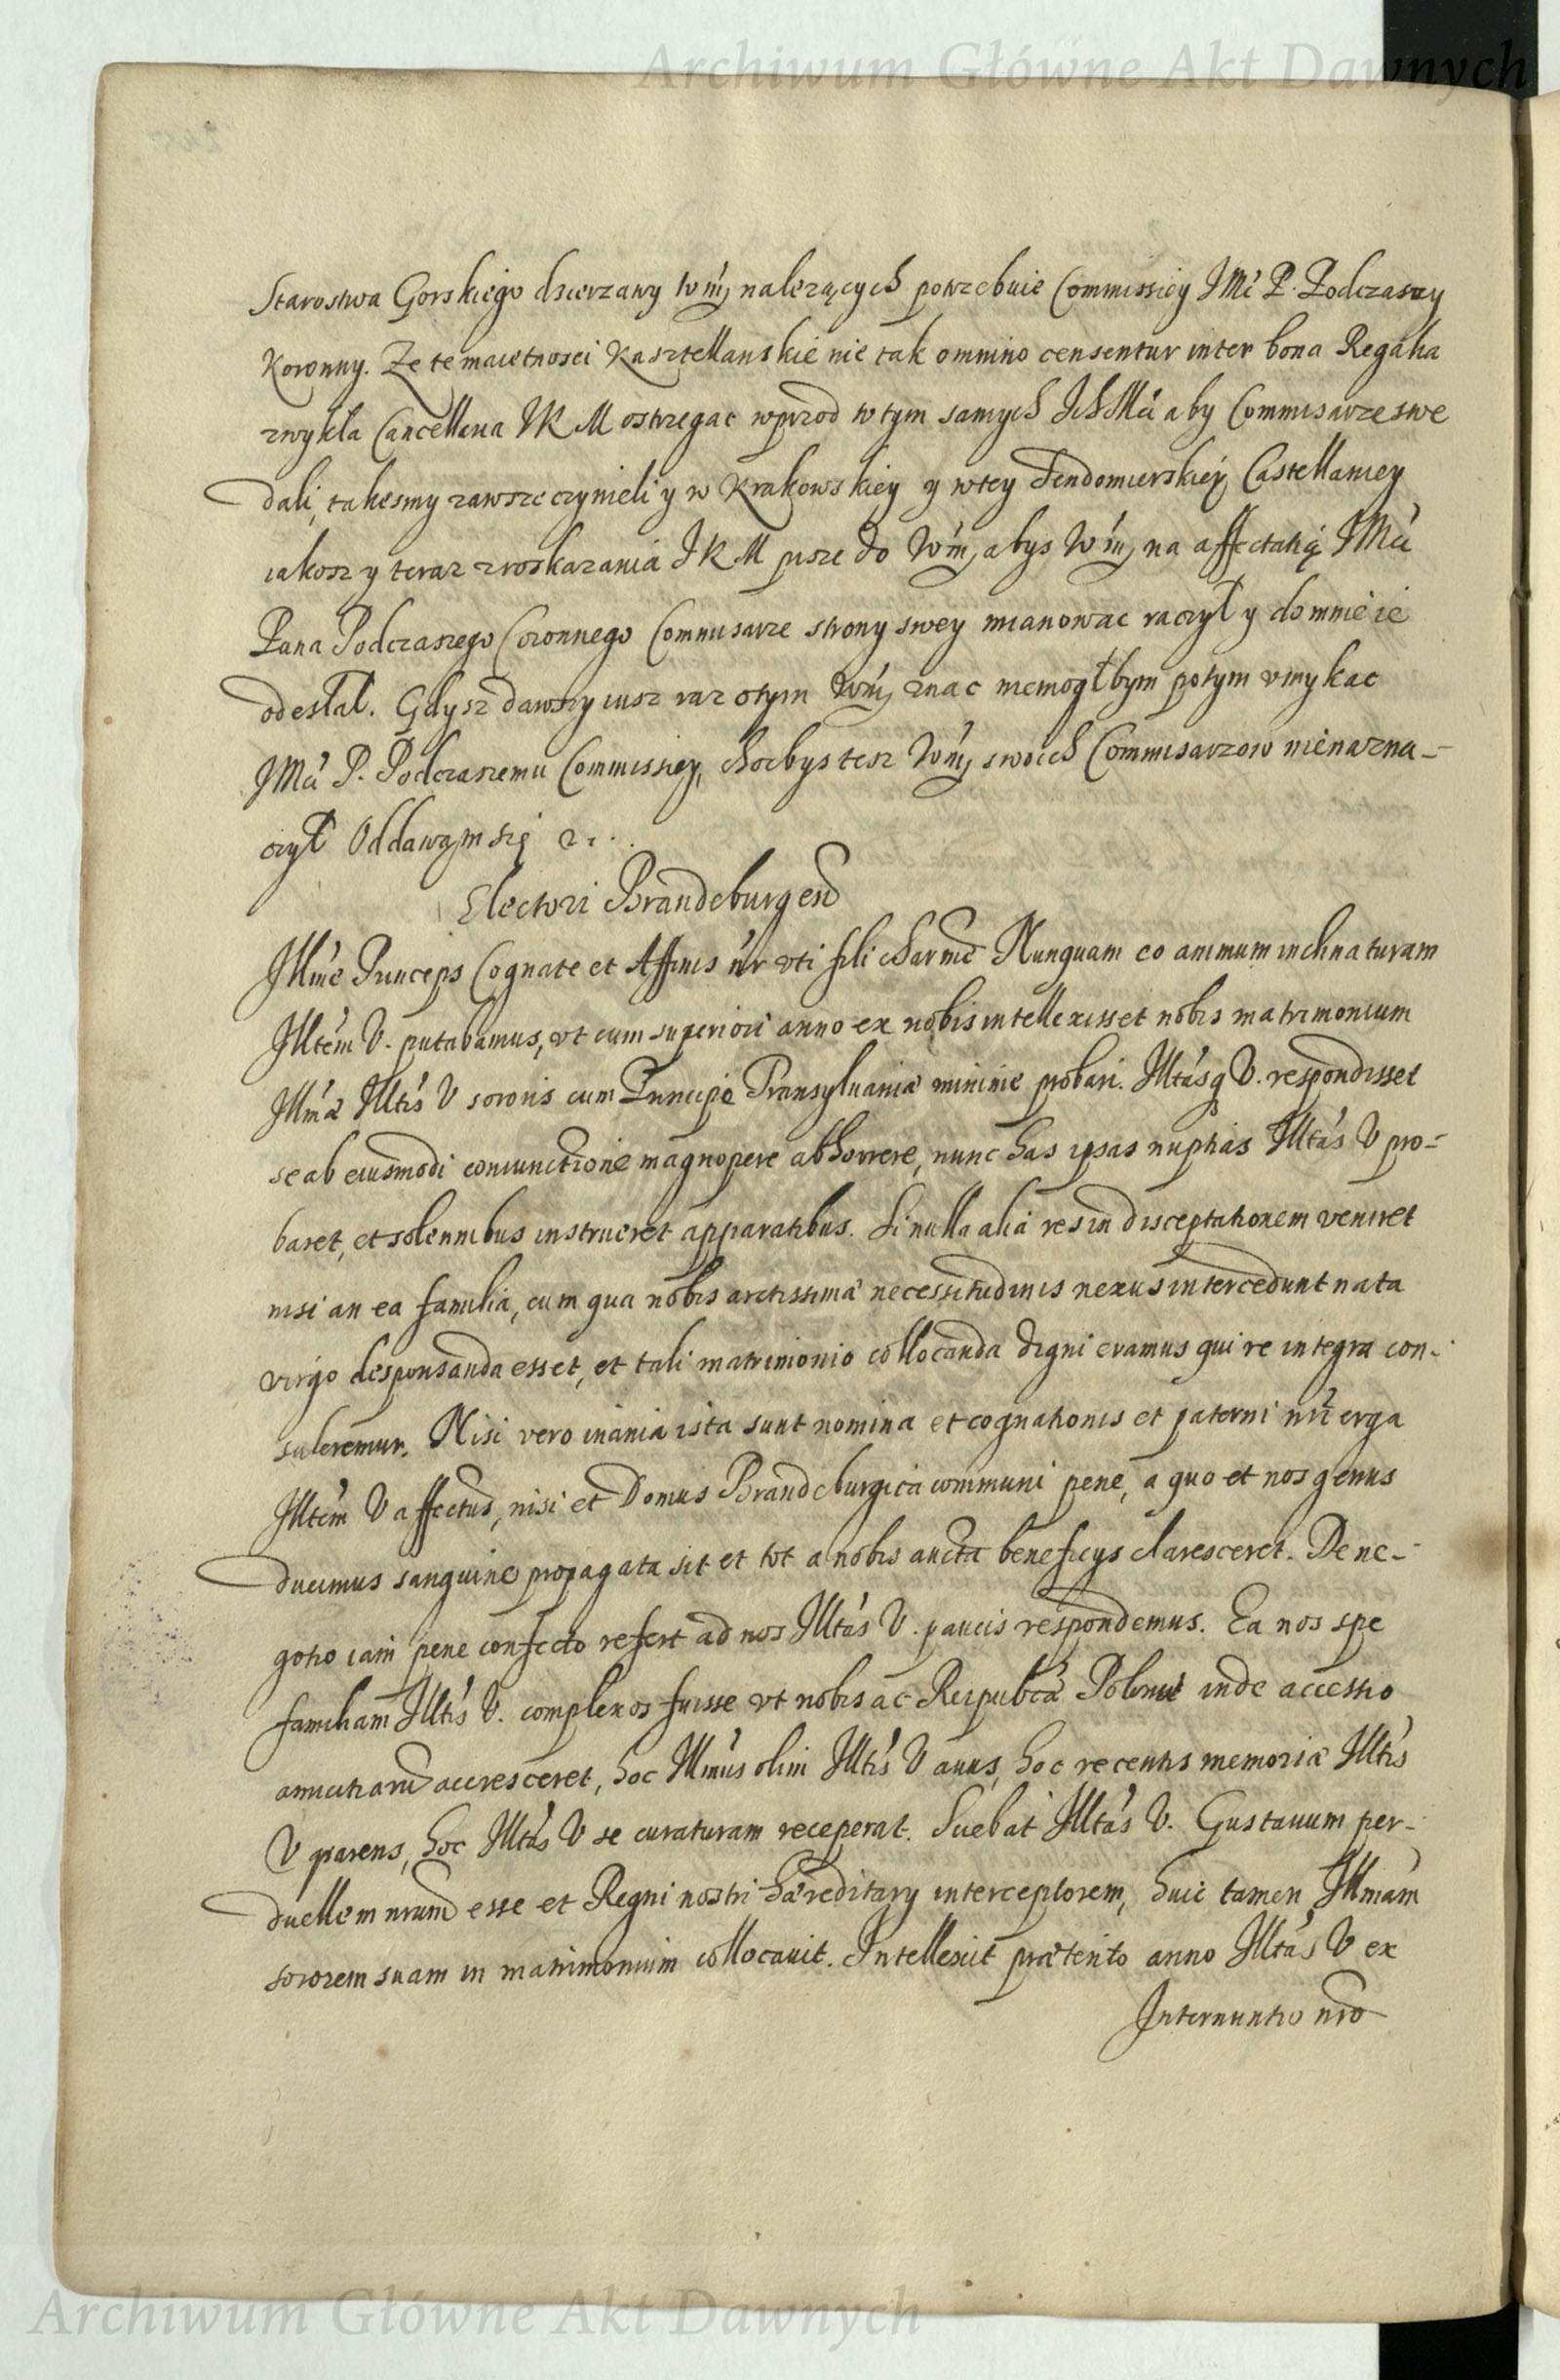 Archiwum Główne Akt Dawnych
Starostwa Gorskiego dzierzawy Wm nalezących potrzebuie Commissiey JMc P. Podczaszy
Koronny. Ze te maietnosci Kasztellanskie nie tak omnino censentur inter bona Regalia
zwykła Cancellaria JKM ostrzegac wprzod w tym samych JchMci aby Commisarze swe
dali, takesmy zawsze czynieli y w Krakowskiey y w tey Sendomierskiey Castellaniey
iakosz y teraz z roskazania JKM pisze do Wm, abys Wm, na affectatią JMci
Pana Podczaszego Coronnego Commisarze strony swey mianowac raczył y do mnie ie
odesłał. Gdysz dawszy iusz raz o tym Wm, znac niemogłbym potym vmykac
JMci P. Podczaszemu Commissiey, chocbys tesz Wm, swoich Commisarzow nienazna-
czył Oddawam się
Electori Brandeburgen
Illme Princeps Cognate et Affinis nr vti fili charme Nunquam eo animum inclinaturam
Illtem V. putabamus, vt cum superiori anno ex nobis intellexisset nobis matrimonium
Illmæ Illtis V sororis cum Principe Transyluaniæ minime probari. Illtasq V. respondisset
se ab eiusmodi coniunctione magnopere abhorrere, nunc has ipsas nuptias Illtas V pro-
baret, et solennibus instrueret apparatibus. Si nulla alia res in disceptationem veniret
nisi an ea familia, cum qua nobis arctissimæ necessitudinis nexus intercedunt nata
virgo desponsanda esset, et tali matrimonio collocanda digni eramus qui re integra con-
suleremur. Nisi vero inania ista sunt nomina et cognationis et paterni nri erga
Illtem V affectus, nisi et Domus Brandeburgica communi pene, a quo et nos genus
ducimus sanguine propagata sit et tot a nobis aucta beneficys claresceret. De ne-
gotio iam pene confecto refert ad nos Illtas V. paucis respondemus. Ea nos spe
familiam Illtis V. complexos fuisse vt nobis ac Reipubcæ Polonæ inde accessio
amicitiarum accresceret, hoc Illmus olim Illtis V auus, hoc recentis memoriæ Illtis
V parens, hoc Illtas V se curaturam receperat. Sciebat Illtas V. Gustauum per-
duellem nrum esse et Regni nostri hæreditary interceptorem, huic tamen Illmam
sororem suam in matrimonium collocauit. Intellexit præterito anno Illtas V ex
Internuntio nro
Archiwum Główne Akt Dawnych